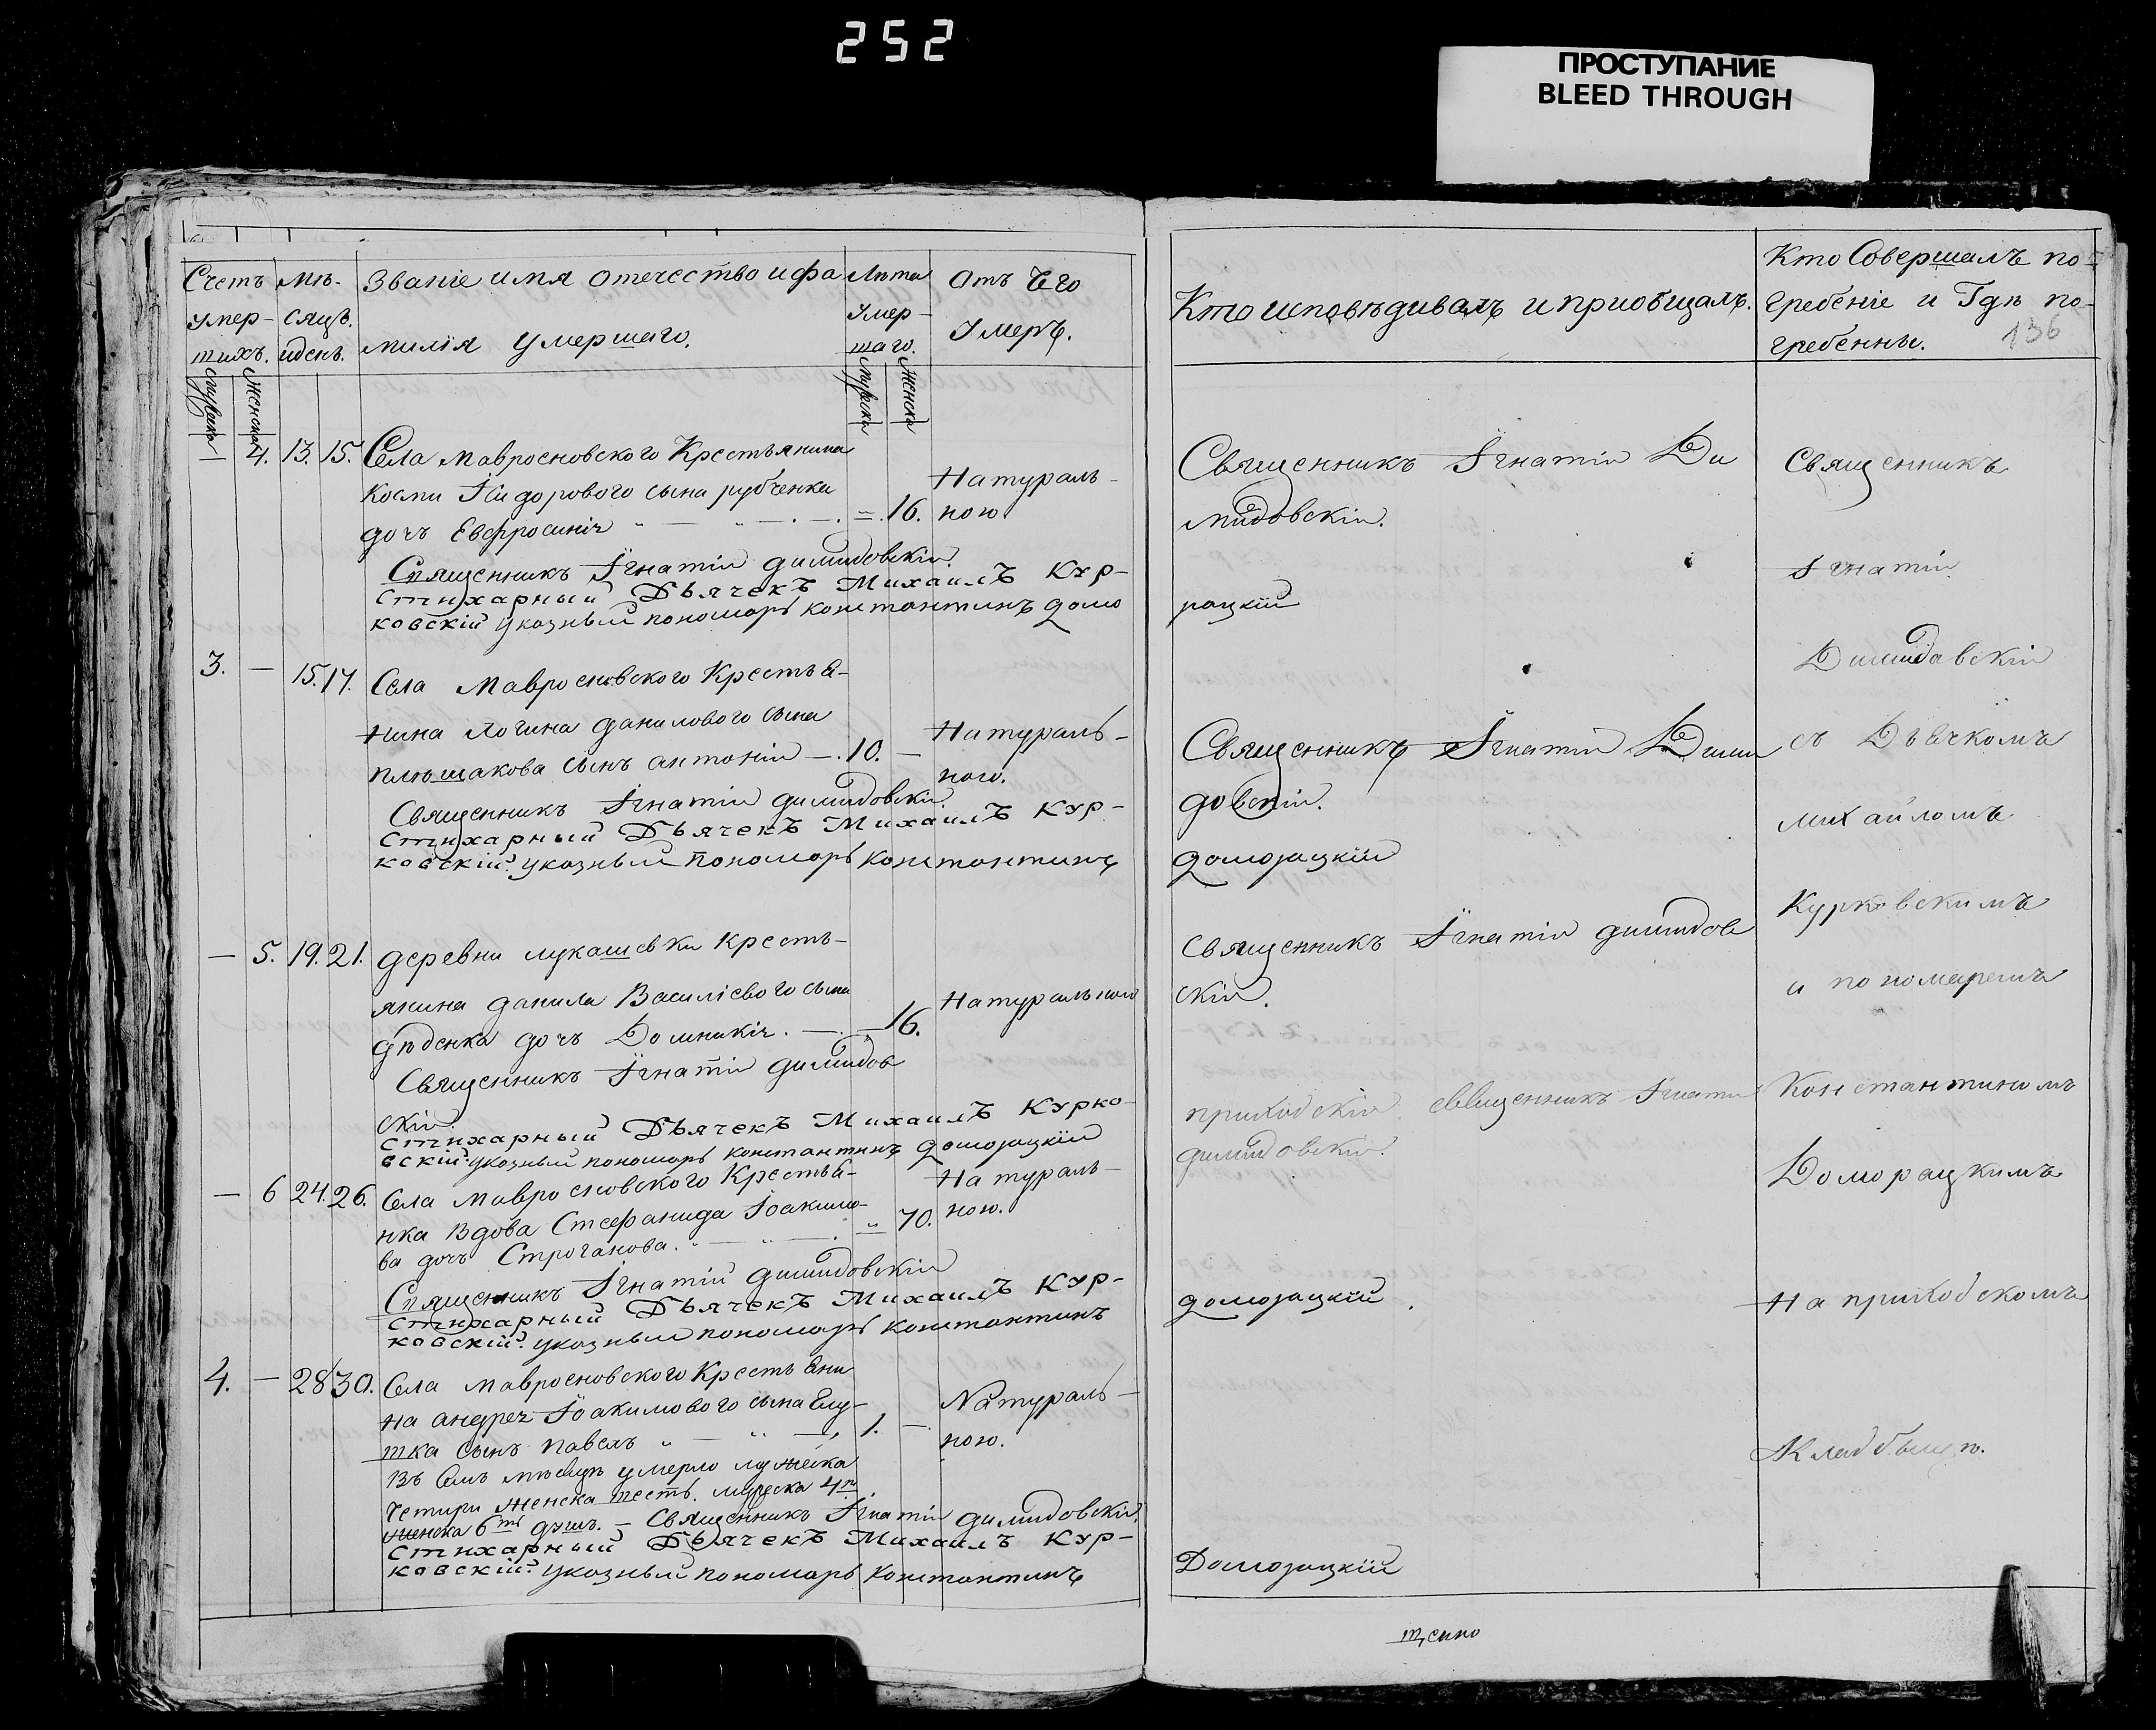 252
ПРОСТУПАНИЕ
BLEED THROUGH
Счетъ умер-шихъ.
Мѣ-сяцъ. и день.
Званіе имя отечество и фа
милія умершаго.
Лѣта умер-шаго.
Отъ Чего
Умеръ.
мужеска
женска
мужеска
женска
— 4. 13. 15. Села Мавросновского Крестьянина
Козми Ісидорового сына рубченка
Натураль-
дочь Евфросинія — 16. ною
Священникъ Ігнатій Димидовскій.
Стихарный Дьячекъ Михаилъ Кур-
ковскій указный пономарь константинъ домо
3. — 15. 17. Села Мавросновского Крестья-
нина Логина Данилового сына
Натураль-
плюшакова сынъ антоній — 10. —
ною.
Священникъ Ігнатій Димидовскій.
Стихарный Дьячекъ Михаилъ Кур-
ковскій. указный пономарь константинъ
— 5. 19. 21. деревни лукашевки кресть-
янина данила Василіевого сына
Натуральною
дѣденка дочь Домникія. — 16.
Священникъ Ігнатій Димидов
скій.
Стихарный Дьячекъ Михаилъ Курко-
вскій. указный пономарь константинъ доморацкій
— 6 24. 26. Села Мавросновского Крестья-
Натураль-
нка Вдова Стефанида Іоакимо-
70. ною.
ва дочь Строганова.
Священникъ Ігнатій Димидовскій
Стихарный Дьячекъ Михаилъ Кур-
ковскій. указный пономарь константинъ
4. — 28 30. Села Мавросновского Крестьяни
на андрея Іоакимового сына Глу-
Натураль-
шка сынъ павелъ — 1. —
ною.
Въ Семъ мѣсяцѣ умерло мужеска
Четыри женска шесть. мужеска 4ри
женска 6ть душъ. — Священникъ Ігнатій димидовскій.
Стихарный Дьячекъ Михаилъ Кур-
ковскій. указный пономарь константинъ
Кто исповѣдивалъ и приобщалъ.
Кто Совершалъ по-
гребеніе и Гдѣ по-
гребенны.
136
Священникъ Ігнатій Ди
мидовскій.
рацкій
Священникъ Ігнатій Дими
довскій.
доморацкій
Священникъ Ігнатій димидов
скій.
приходскій священникъ Ігнатій
димидовскій.
доморацкій
Доморацкій
Священникъ
Ігнатій
Димидавскій
съ Дьячкомъ
михайломъ
Курковскимъ
и пономаремъ
Константиномъ
Доморацкимъ
На приходскомъ
Кладбыщѣ.